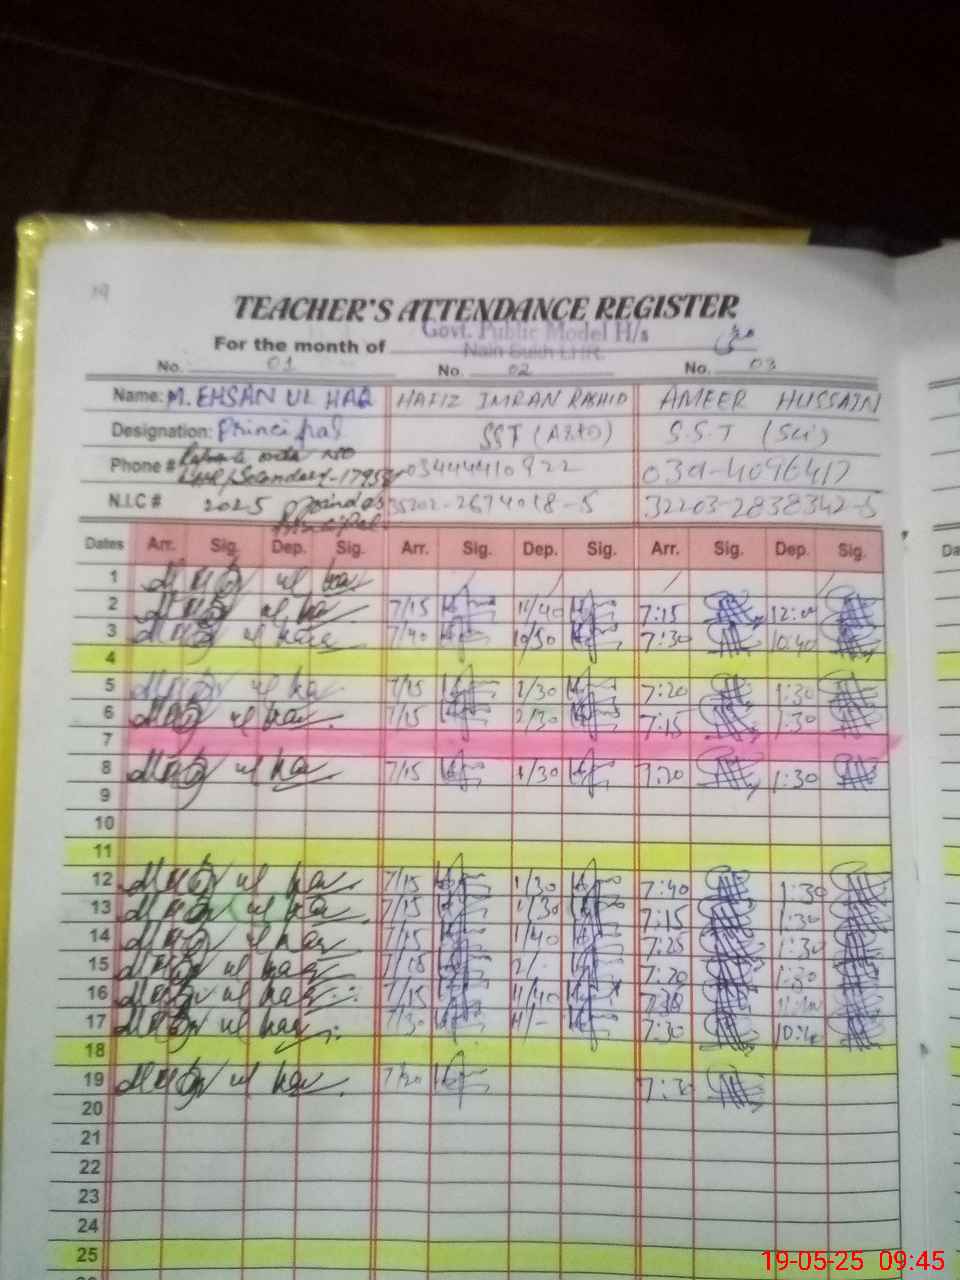 19
TEACHER'S ATTENDANCE REGISTER
Govt. Public Model H/s
For the month of مئی
Nain Sukh LHR.
No. 01 No. 02 No. 03
Name: M. EHSAN UL HAQ HAFIZ IMRAN RASHID AMEER HUSSAIN
Designation: Principal SST (Arts) S.S.T (Sci)
Phone # NO 03444410922
LHR/Secondary-17958
N.I.C # 2025 35202-2674018-5 32203-2838342-5
Principal
Dates Arr. Sig. Dep. Sig. Arr. Sig. Dep. Sig. Arr. Sig. Dep. Sig.
1 ul haq
2 ul haq 7/15 11/40 7:15 12:00
3 ul haq 7/40 10/50 7:30 10:40
4
5 ul haq 7/15 1/30 7:20 1:30
6 ul haq 7/15 2/30 7:15 1:30
7
8 ul haq 7/15 1/30 7:20 1:30
9
10
11
12 ul haq 7/15 1/30 7:40 1:30
13 ul haq 7/15 1/30 7:15 1:30
14 ul haq 7/15 1/40 7:25 1:30
15 ul haq 7/15 2/- 7:20 1:30
16 ul haq 7/15 11/40
17 ul haq 7/30 11/- 7:30 10:40
18
19 ul haq 7/20 7:30
20
21
22
23
24
25
19-05-25 09:45